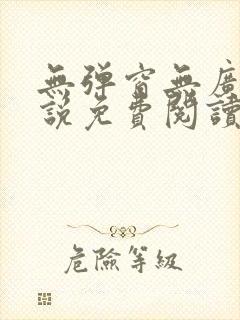 無彈窗無廣
說免費閱讀
危險等級